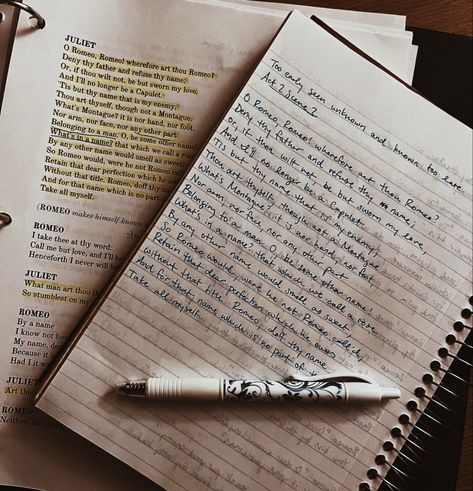 JULIET
O Romeo, Romeo! wherefore art thou Romeo?
Deny thy father and refuse thy name;
Or, if thou wilt not, be but sworn my love,
And I'll no longer be a Capulet.
'Tis but thy name that is my enemy;
Thou art thyself, though not a Montague.
What's Montague? it is nor hand, nor foot,
Nor arm, nor face, nor any other part
Belonging to a man. O, be some other name!
What's in a name? that which we call a rose
By any other name would smell as sweet;
So Romeo would, were he not Romeo
Retain that dear perfection which he
Without that title. Romeo, doff thy
And for that name which is no part
Take all myself.
(ROMEO makes himself known
ROMEO
I take thee at thy word:
Call me but love, and I'll be
Henceforth I never will
JULIET
What man art thou
So stumblest on my
ROMEO
By a name
I know not how
My name, dear
Because it
Had I it
JULIET
Art thou
ROMEO
Neither, fair
Too early seen unknown and known too late
Act 2 Scene 2
O Romeo, Romeo! wherefore art thou Romeo?
Deny thy father and refuse thy name,
or if thou wilt not be but sworn my love,
And I'll no longer be a Capulet
'Tis but thy name that is my enemy;
Thou art thyself, though not a Montague
What's Montague? it is nor hand, nor foot,
Nor arm, nor face, nor any other part
Belonging to a man. O, be some other name!
What's in a name? that which we call a rose
By any other name would smell as sweet
So Romeo would, were he not Romeo call'd,
Retain that dear perfection which he owes
without that title. Romeo, doff thy name
And for thy name, which is no part of
Take all myself.